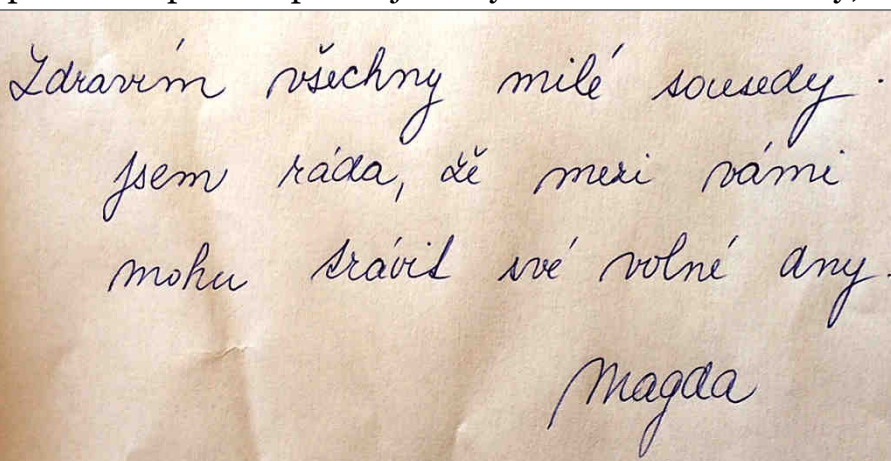 Zdravím všechny milé sousedy.
Jsem ráda, že mezi vámi
mohu trávit své volné dny.
Magda